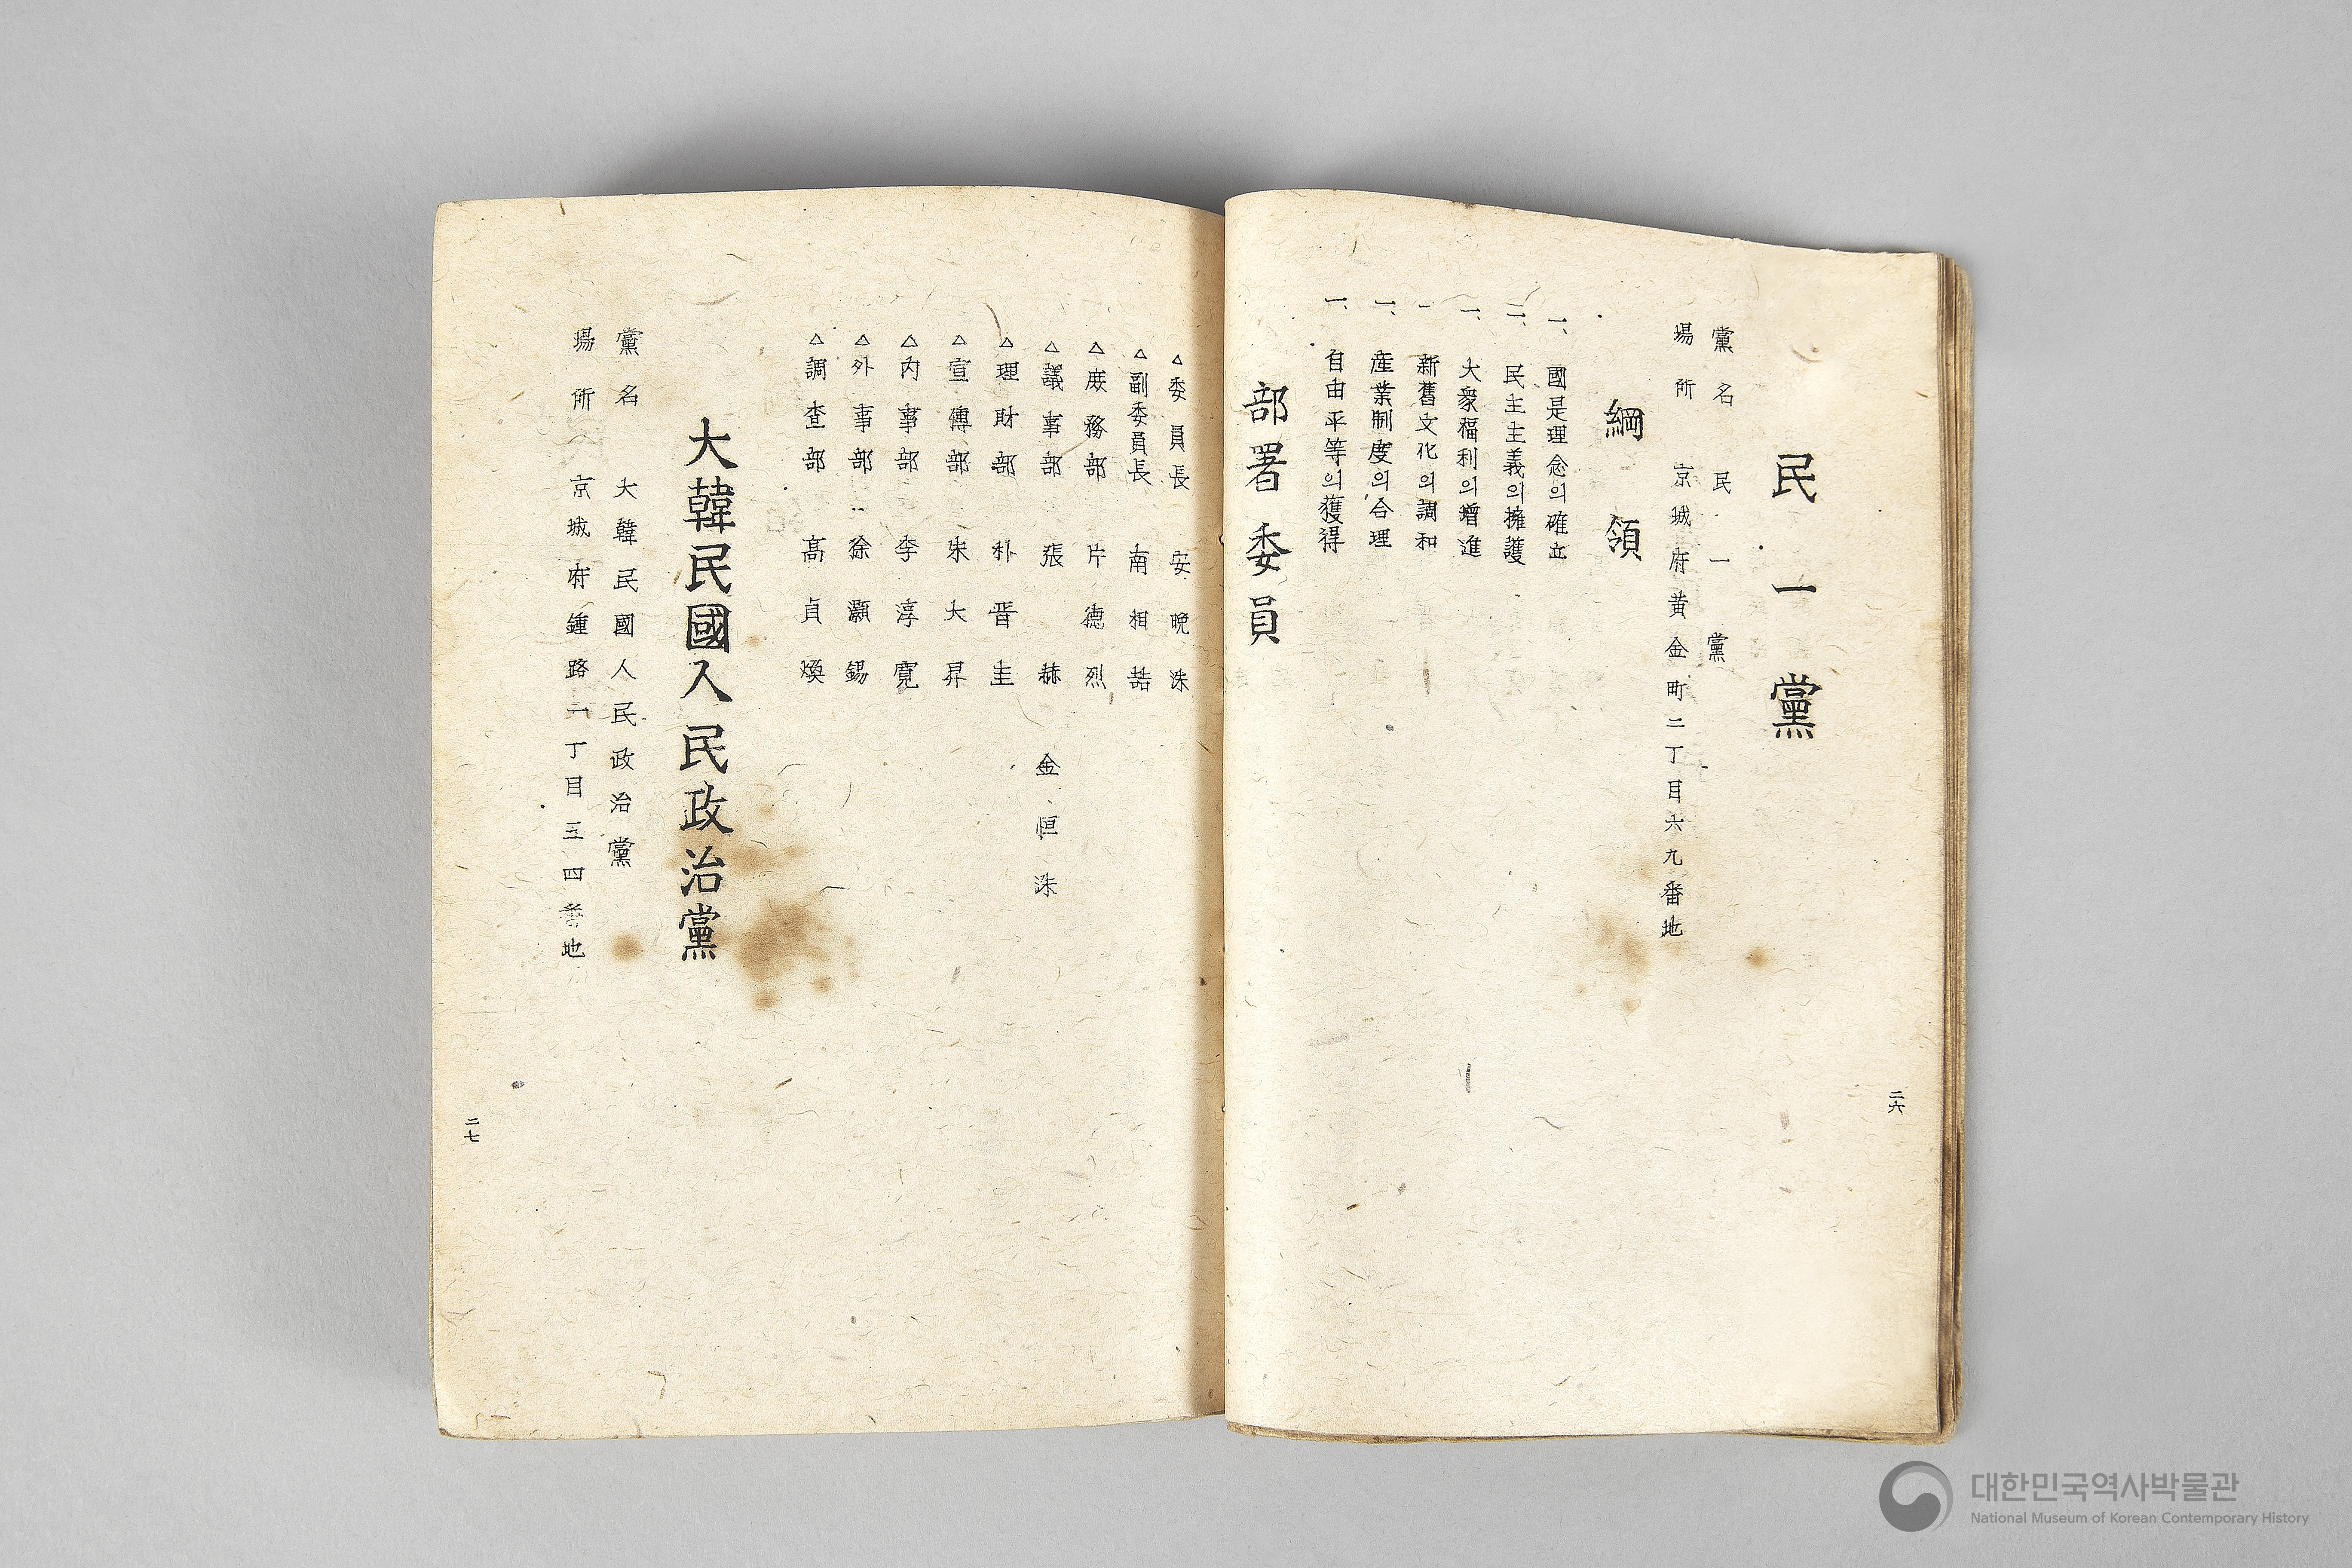 民一黨
黨名 民一黨
場所 京城府黃金町二丁目六九番地
綱領
一、國是理念의確立
一、民主主義의擁護
一、大衆福利의增進
一 新舊文化의調和
一、産業制度의合理
一、自由平等의獲得
部署委員
二六
△委員長 安晩洙
△副委員長 南相喆
△庶務部 片德烈
△議事部 張 赫 金恒洙
△理財部 朴晋圭
△宣傳部 朱大昇
△內事部 李淳寬
△外事部 徐灝錫
△調査部 高貞煥
大韓民國人民政治黨
黨名 大韓民國人民政治黨
場所 京城府鍾路一丁目五四番地
二七
대한민국역사박물관
National Museum of Korean Contemporary History